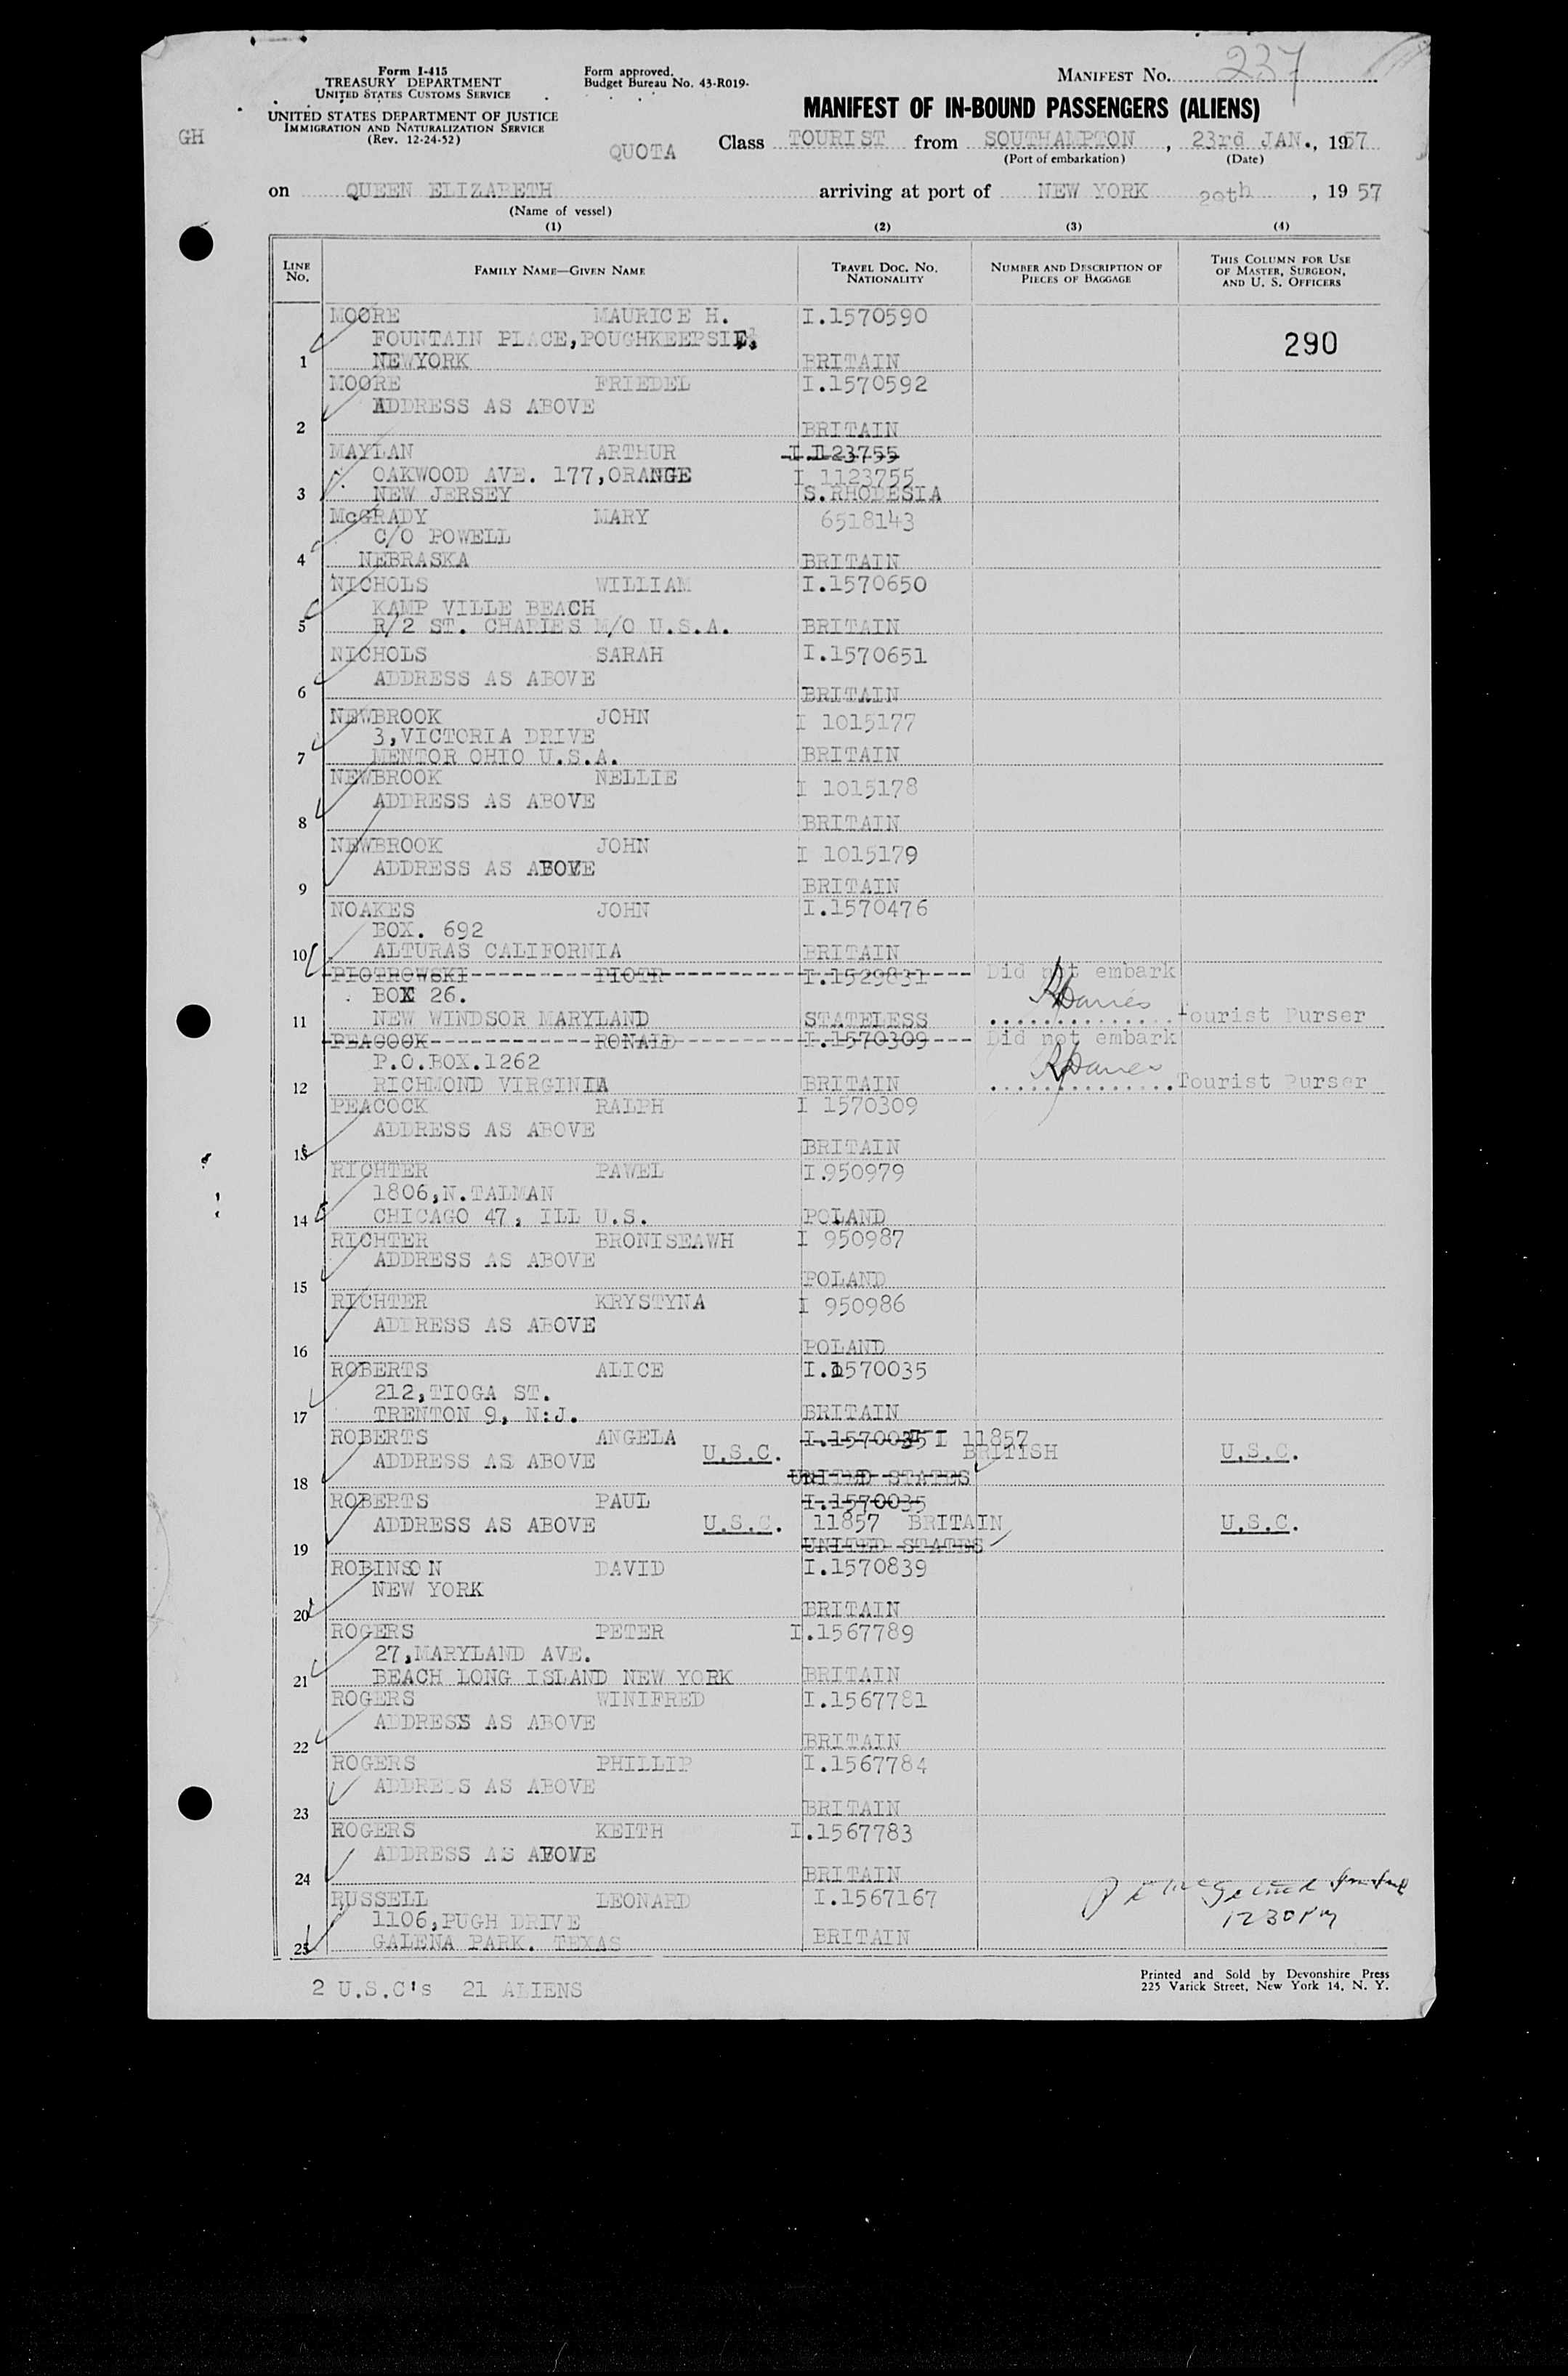 Form I-415
TREASURY DEPARTMENT
UNITED STATES CUSTOMS SERVICE
UNITED STATES DEPARTMENT OF JUSTICE
IMMIGRATION AND NATURALIZATION SERVICE
(Rev. 12-24-52)
Form approved.
Budget Bureau No. 43-R019-
MANIFEST No. 237
MANIFEST OF IN-BOUND PASSENGERS (ALIENS)
GH
QUOTA Class TOURIST from SOUTHAMPTON, 23rd JAN., 1957
(Port of embarkation) (Date)
on QUEEN ELIZABETH arriving at port of NEW YORK 29th, 1957
(Name of vessel)
(1) (2) (3) (4)
LINE No. FAMILY NAME—GIVEN NAME TRAVEL DOC. NO. NATIONALITY NUMBER AND DESCRIPTION OF PIECES OF BAGGAGE THIS COLUMN FOR USE OF MASTER, SURGEON, AND U. S. OFFICERS
MOORE MAURICE H. I.1570590
FOUNTAIN PLACE, POUGHKEEPSIE, 290
1 NEWYORK BRITAIN
MOORE FRIEDEL I.1570592
ADDRESS AS ABOVE
2 BRITAIN
MAYLAN ARTHUR I.1123755
OAKWOOD AVE. 177, ORANGE I 1123755
3 NEW JERSEY S.RHODESIA
McGRADY MARY 6518143
C/O POWELL
4 NEBRASKA BRITAIN
NICHOLS WILLIAM I.1570650
KAMP VILLE BEACH
5 R/2 ST. CHARIES M/O U.S.A. BRITAIN
NICHOLS SARAH I.1570651
ADDRESS AS ABOVE
6 BRITAIN
NEWBROOK JOHN I 1015177
3, VICTORIA DRIVE
7 MENTOR OHIO U.S.A. BRITAIN
NEWBROOK NELLIE I 1015178
ADDRESS AS ABOVE
8 BRITAIN
NEWBROOK JOHN I 1015179
ADDRESS AS ABOVE
9 BRITAIN
NOAKES JOHN I.1570476
BOX. 692
10 ALTURAS CALIFORNIA BRITAIN
PIOTROWSKI PIOTR I.1529831 Did not embark
BOX 26.
11 NEW WINDSOR MARYLAND STATELESS Tourist Purser
PEACOCK RONALD I.1570309 Did not embark
P.O.BOX.1262
12 RICHMOND VIRGINIA BRITAIN Tourist Purser
PEACOCK RALPH I 1570309
ADDRESS AS ABOVE
13 BRITAIN
RICHTER PAWEL I.950979
1806, N.TALMAN
14 CHICAGO 47, ILL U.S. POLAND
RICHTER BRONISEAWH I 950987
ADDRESS AS ABOVE
15 POLAND
RICHTER KRYSTYNA I 950986
ADDRESS AS ABOVE
16 POLAND
ROBERTS ALICE I.1570035
212, TIOGA ST.
17 TRENTON 9, N:J. BRITAIN
ROBERTS ANGELA I.1570035 I 11857
ADDRESS AS ABOVE U.S.C. BRITISH U.S.C.
18 UNITED STATES
ROBERTS PAUL I.1570035
ADDRESS AS ABOVE U.S.C. 11857 BRITAIN U.S.C.
19 UNITED STATES
ROBINSON DAVID I.1570839
NEW YORK
20 BRITAIN
ROGERS PETER I.1567789
27, MARYLAND AVE.
21 BEACH LONG ISLAND NEW YORK BRITAIN
ROGERS WINIFRED I.1567781
ADDRESS AS ABOVE
22 BRITAIN
ROGERS PHILLIP I.1567784
ADDRESS AS ABOVE
23 BRITAIN
ROGERS KEITH I.1567783
ADDRESS AS ABOVE
24 BRITAIN
RUSSELL LEONARD I.1567167
1106, PUGH DRIVE 1230 PM
25 GALENA PARK. TEXAS BRITAIN
2 U.S.C's 21 ALIENS
Printed and Sold by Devonshire Press
225 Varick Street, New York 14, N. Y.